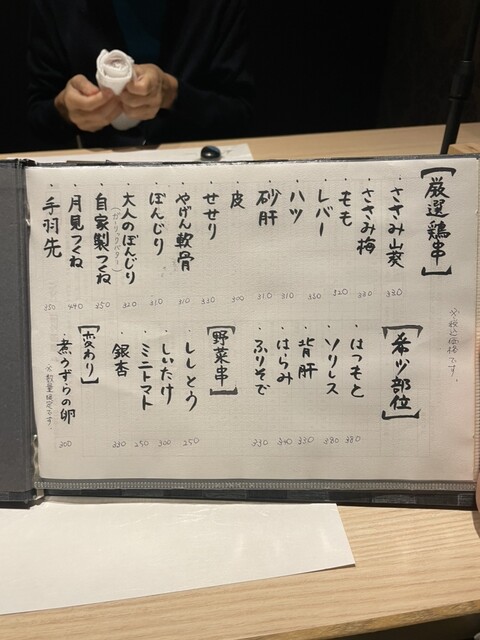 【厳選鶏串】
・ささみ山葵 330
・ささみ梅 330
・もも 320
・レバー
・ハツ 310
・砂肝 310
・皮 300
・せせり 330
・やげん軟骨 310
・ぼんじり 310
・大人のぼんじり 320
(ガーリックバター)
・自家製つくね 350
・月見つくね 440
・手羽先 350
※税込価格です。
【希少部位】
・はつもと 380
・ソリレス 380
・背肝 330
・はらみ 340
・ふりそで 330
【野菜串】
・ししとう 250
・しいたけ 300
・ミニトマト 250
・銀杏 330
【変わり】
・煮うずらの卵 300
※数量限定です。